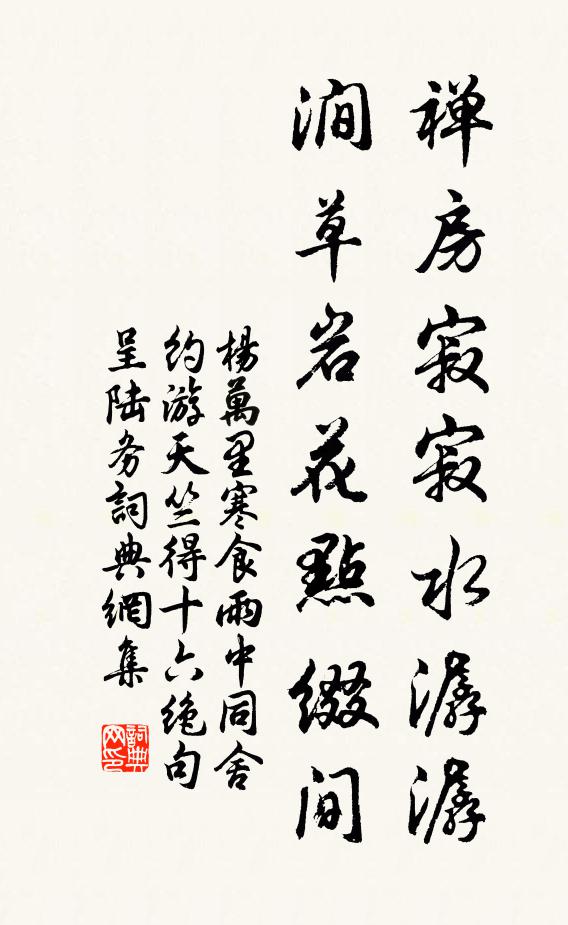 禅房寂寂水潺潺
澗草岩花點缀间
楊萬里寒食雨中同舍
约游天竺得十六绝句
呈陆务詞典網集
詞典
网印